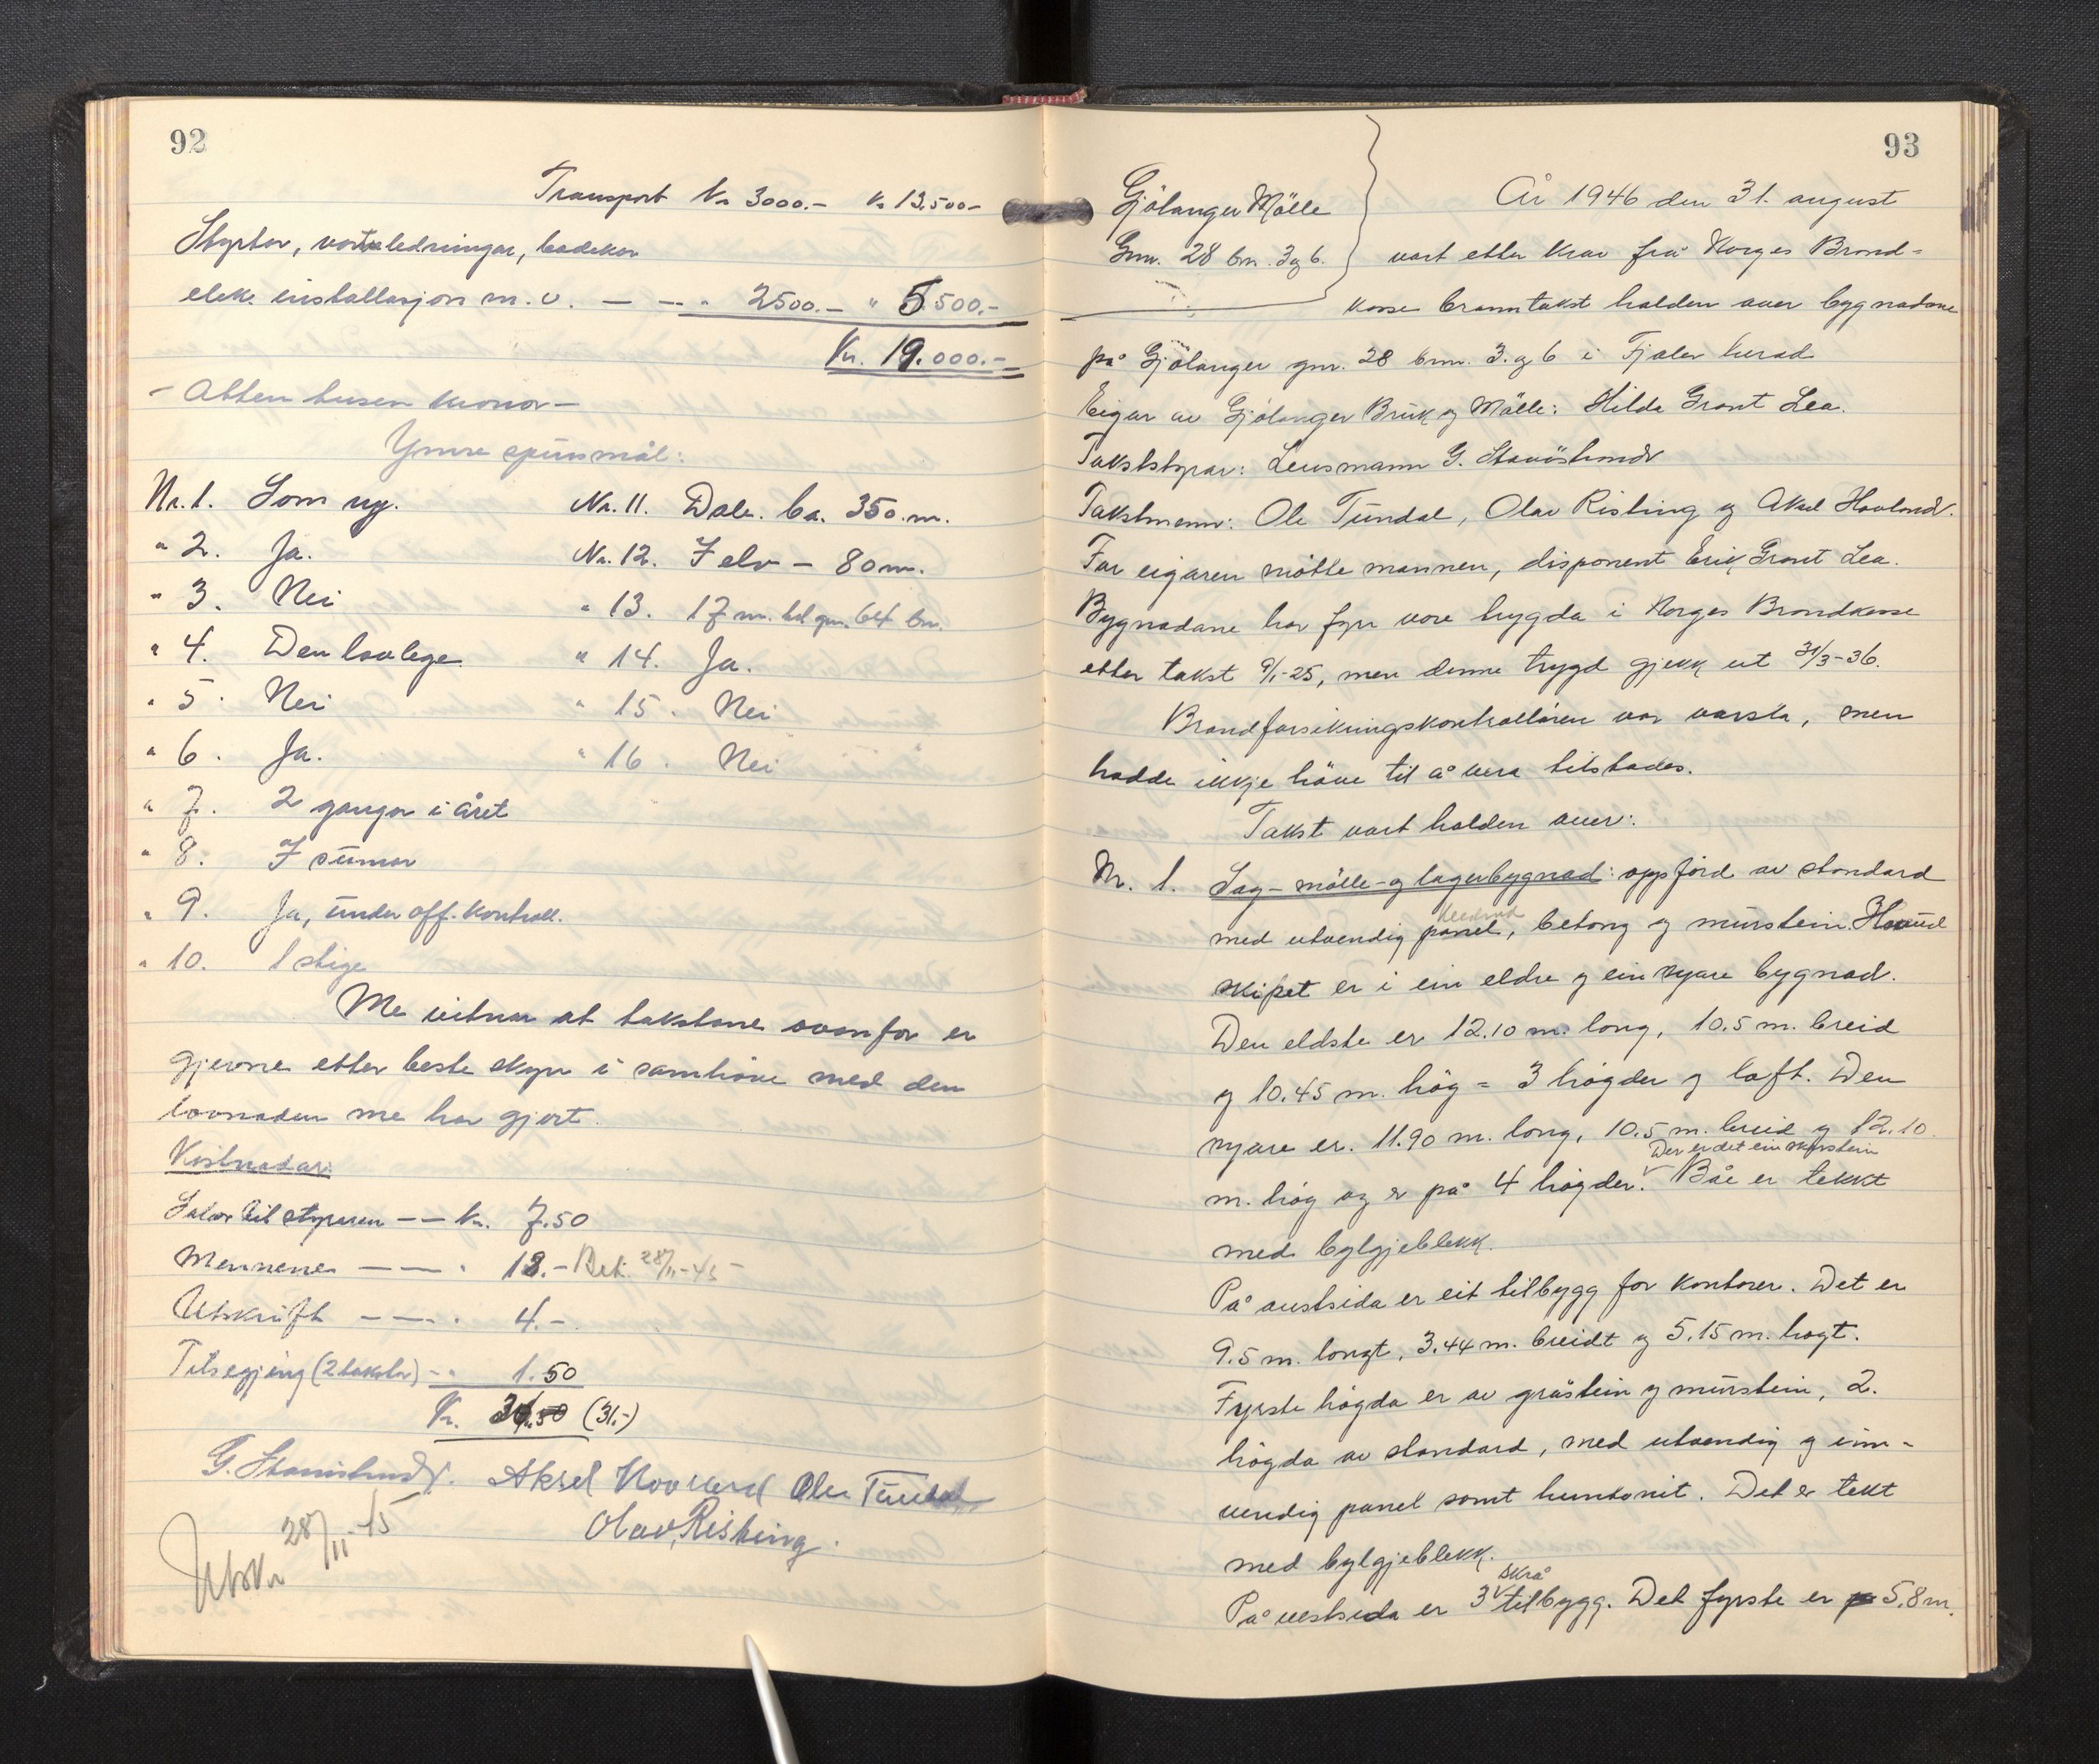 92
Transport Kr 3000.- Kr 13.500-
Styrtor, vassledningar, badekar
elek. installasjon m. v. — — " 2500.- " 5.500.-
Kr. 19.000.-
- Atten tusen kronor -
Ymse spursmål:
Nr. 1. Som ny. Nr. 11. Dale. Ca. 350 m.
" 2. Ja. Nr. 12. I elv - 80 m.
" 3. Nei " 13. 17 m. til gnr. 64 bnr.
" 4. Den lovlege " 14. Ja.
" 5. Nei " 15. Nei
" 6. Ja. " 16. Nei
" 7. 2 gangor i året
" 8. I sumar
" 9. Ja, under off. kontroll.
" 10. 1 stige
Me vitnar at takstane ovanfor er
gjevne etter beste skyn i samhöve med den
lovnaden me har gjort.
Kostnadar:
Salær til styraren — — Kr. 7.50
Mennene — — " 18.- Bet. 28/11-45
Utskrift — — " 4.-
Tilsegjing (2 takstar) - " 1.50
Kr. (31.-)
G. Staurlund. Aksel Hovland Ole Tundal
Olav Risting.
Utskr 28/11-45
93
Gjölanger Mölle
Gnr. 28 bnr. 3 og 6.
År 1946 den 31. august
vart etter krav frå Norges Brand=
kasse branntakst halden over bygnadane
på Gjölanger gnr. 28 bnr. 3. og 6 i Fjaler herad
Eigar av Gjölanger Bruk og Mölle: Hilda Grant Lea.
Takststyrar: Lensmann G. Staurlund
Takstmenn: Ole Tundal, Olav Risting og Aksel Hovland.
For eigaren møtte mannen, disponent Erik Grant Lea.
Bygnadane har fyrr vore trygda i Norges Brandkasse
etter takst 9/1-25, men denne trygd gjekk ut 31/3-36.
Brandforsikringskontrollören var varsla, men
hadde ikkje höve til å vera tilstades.
Takst vart halden over:
Nr. 1. Sag- mölle- og lagerbygnad: oppförd av standard
med utvendig panel, betong og murstein. Hovud
skipet er i ein eldre og ein nyare bygnad.
Den eldste er 12.10 m. lang, 10.5 m. breid
og 10.45 m. hög = 3 högder og loft. Den
nyare er. 11.90 m. lang, 10.5 m. breid og 12.10
Der er det ein skorstein
m. hög og er på 4 högder. Båe er tekkt
med bylgjeblekk.
På austsida er eit tilbygg for kontorer. Det er
9.5 m. langt, 3.44 m. breidt og 5.15 m. högt.
Fyrste högda er av gråstein og murstein, 2.
högda av standard, med utvendig og inn-
vendig panel samt huntonit. Det er tekt
med bylgjeblekk.
skrå
På vestsida er 3 tilbygg. Det fyrste er 5.8 m.